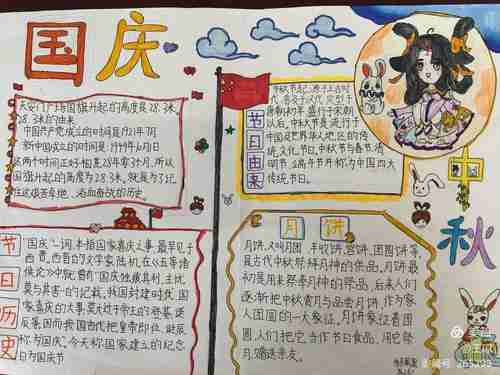 国庆
天安门广场国旗升起的高度是28.3米,
28.3米的由来
中国共产党成立的时间是1921年7月
新中国成立的时间是:1949年10月1日
这两个时间正好相差28年零3个月,所以
国旗升起的高度为28.3米,就是为了记
住这艰苦卓绝、浴血奋战的历史。
节日由来
中秋节起源于上古时
代,普及于汉代,定型于
唐朝初年,盛行于宋朝
以后。中秋节是流行于
中国及世界华人地区的传
统文化节日。中秋节与春节、清
明节、端午节并称为中国四大
传统节日。
中秋
节日历史
"国庆"一词,本指国家喜庆之事,最早见于
西晋。西晋的文学家陆机在《五等诸
侯论》中就曾有"国庆独飨其利,主忧
莫与其害"的记载、我国封建时代、国
家喜庆的大事,莫大过于帝王的登基、诞
辰等。因而我国古代把皇帝即位、诞辰
称为"国庆"。今天称国家建立的纪念
日为国庆节
月饼
月饼,又叫月团、丰收饼、宫饼、团圆饼等,
是古代中秋祭拜月神的供品。月饼最
初是用来祭奉月神的祭品,后来人们
逐渐把中秋赏月与品尝月饼,作为家
人团圆的一大象征。月饼象征着团
圆,人们把它当作节日食品,用它祭
月、赠送亲友。